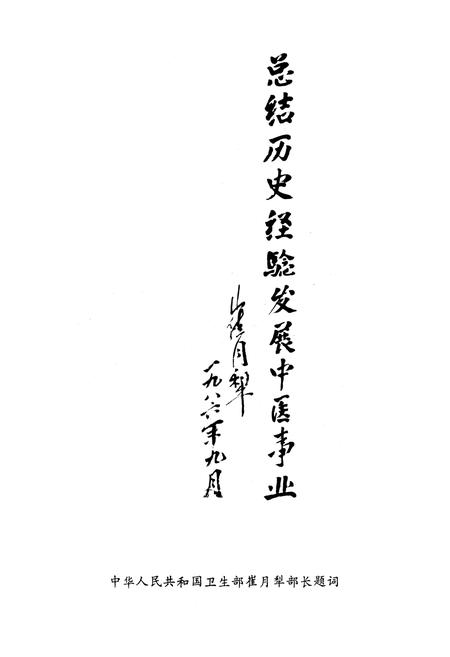 总结历史经验发展中医事业
崔月犁
一九八六年九月
中华人民共和国卫生部崔月犁部长题词